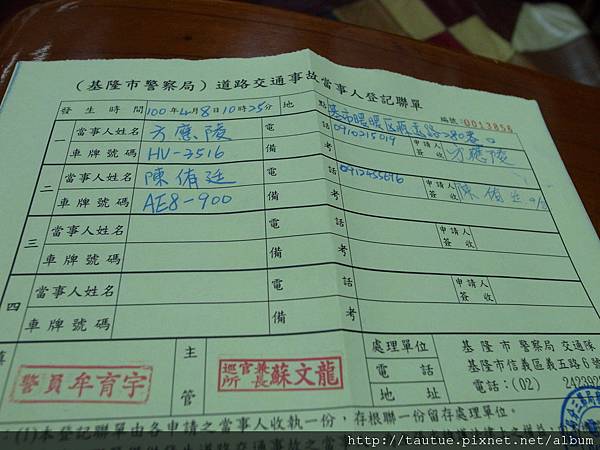 (基隆市警察局)道路交通事故當事人登記聯單
編號:0013856
發生時間 100年4月8日10時25分 地點
一 當事人姓名 方應陵 電話 0910215019 申請人簽收 方應陵
車牌號碼 HV-2516 備考
二 當事人姓名 陳侑廷 電話 申請人簽收 陳侑廷
車牌號碼 AE8-900 備考
三 當事人姓名 電話 申請人簽收
車牌號碼 備考
四 當事人姓名 電話 申請人簽收
車牌號碼 備考
警員牟育宇
主管
巡官兼所長蘇文龍
處理單位 基隆市警察局 交通隊
電話 基隆市信義區義五路6號
地址 電話:(02) 242392
:(1)本登記聯單由各申請之當事人收執一份,存根聯一份留存處理單位。
http://tautue.pixnet.net/album